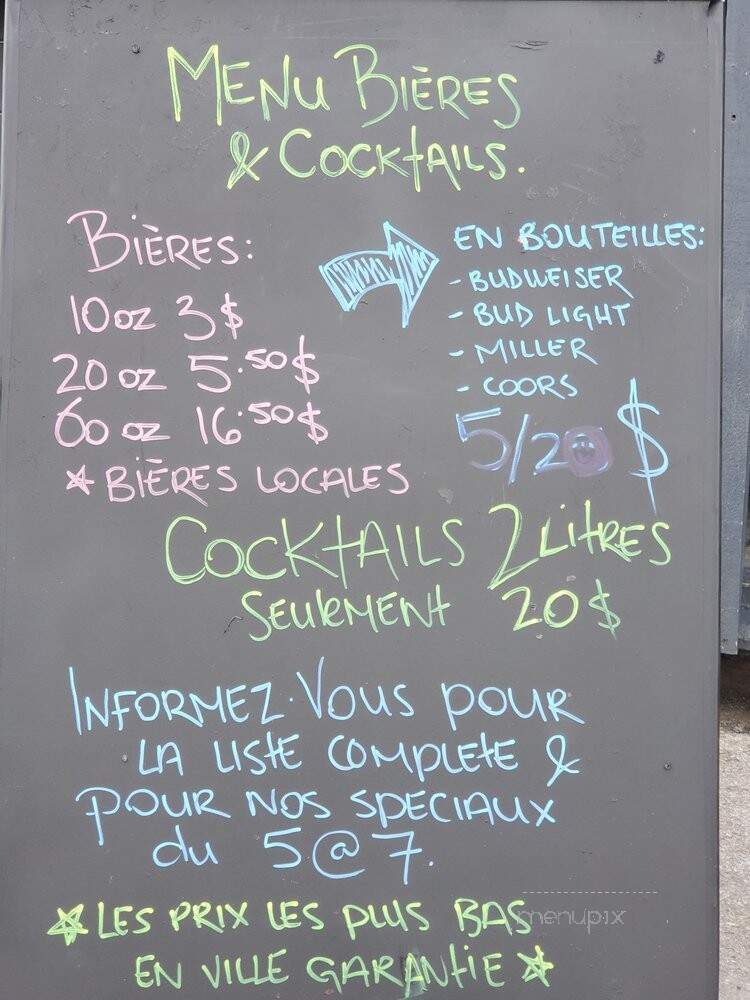 MENU BIÈRES
& COCKTAILS.
BIÈRES:
10 oz 3$
20 oz 5.50$
60 oz 16.50$
* BIÈRES LOCALES
EN BOUTEILLES:
- BUDWEISER
- BUD LIGHT
- MILLER
- COORS
5/20$
COCKTAILS 2 LITRES
SEULEMENT 20$
INFORMEZ-VOUS POUR
LA LISTE COMPLETE &
POUR NOS SPECIAUX
du 5@7.
* LES PRIX LES PLUS BAS
EN VILLE GARANTIE *
menupix